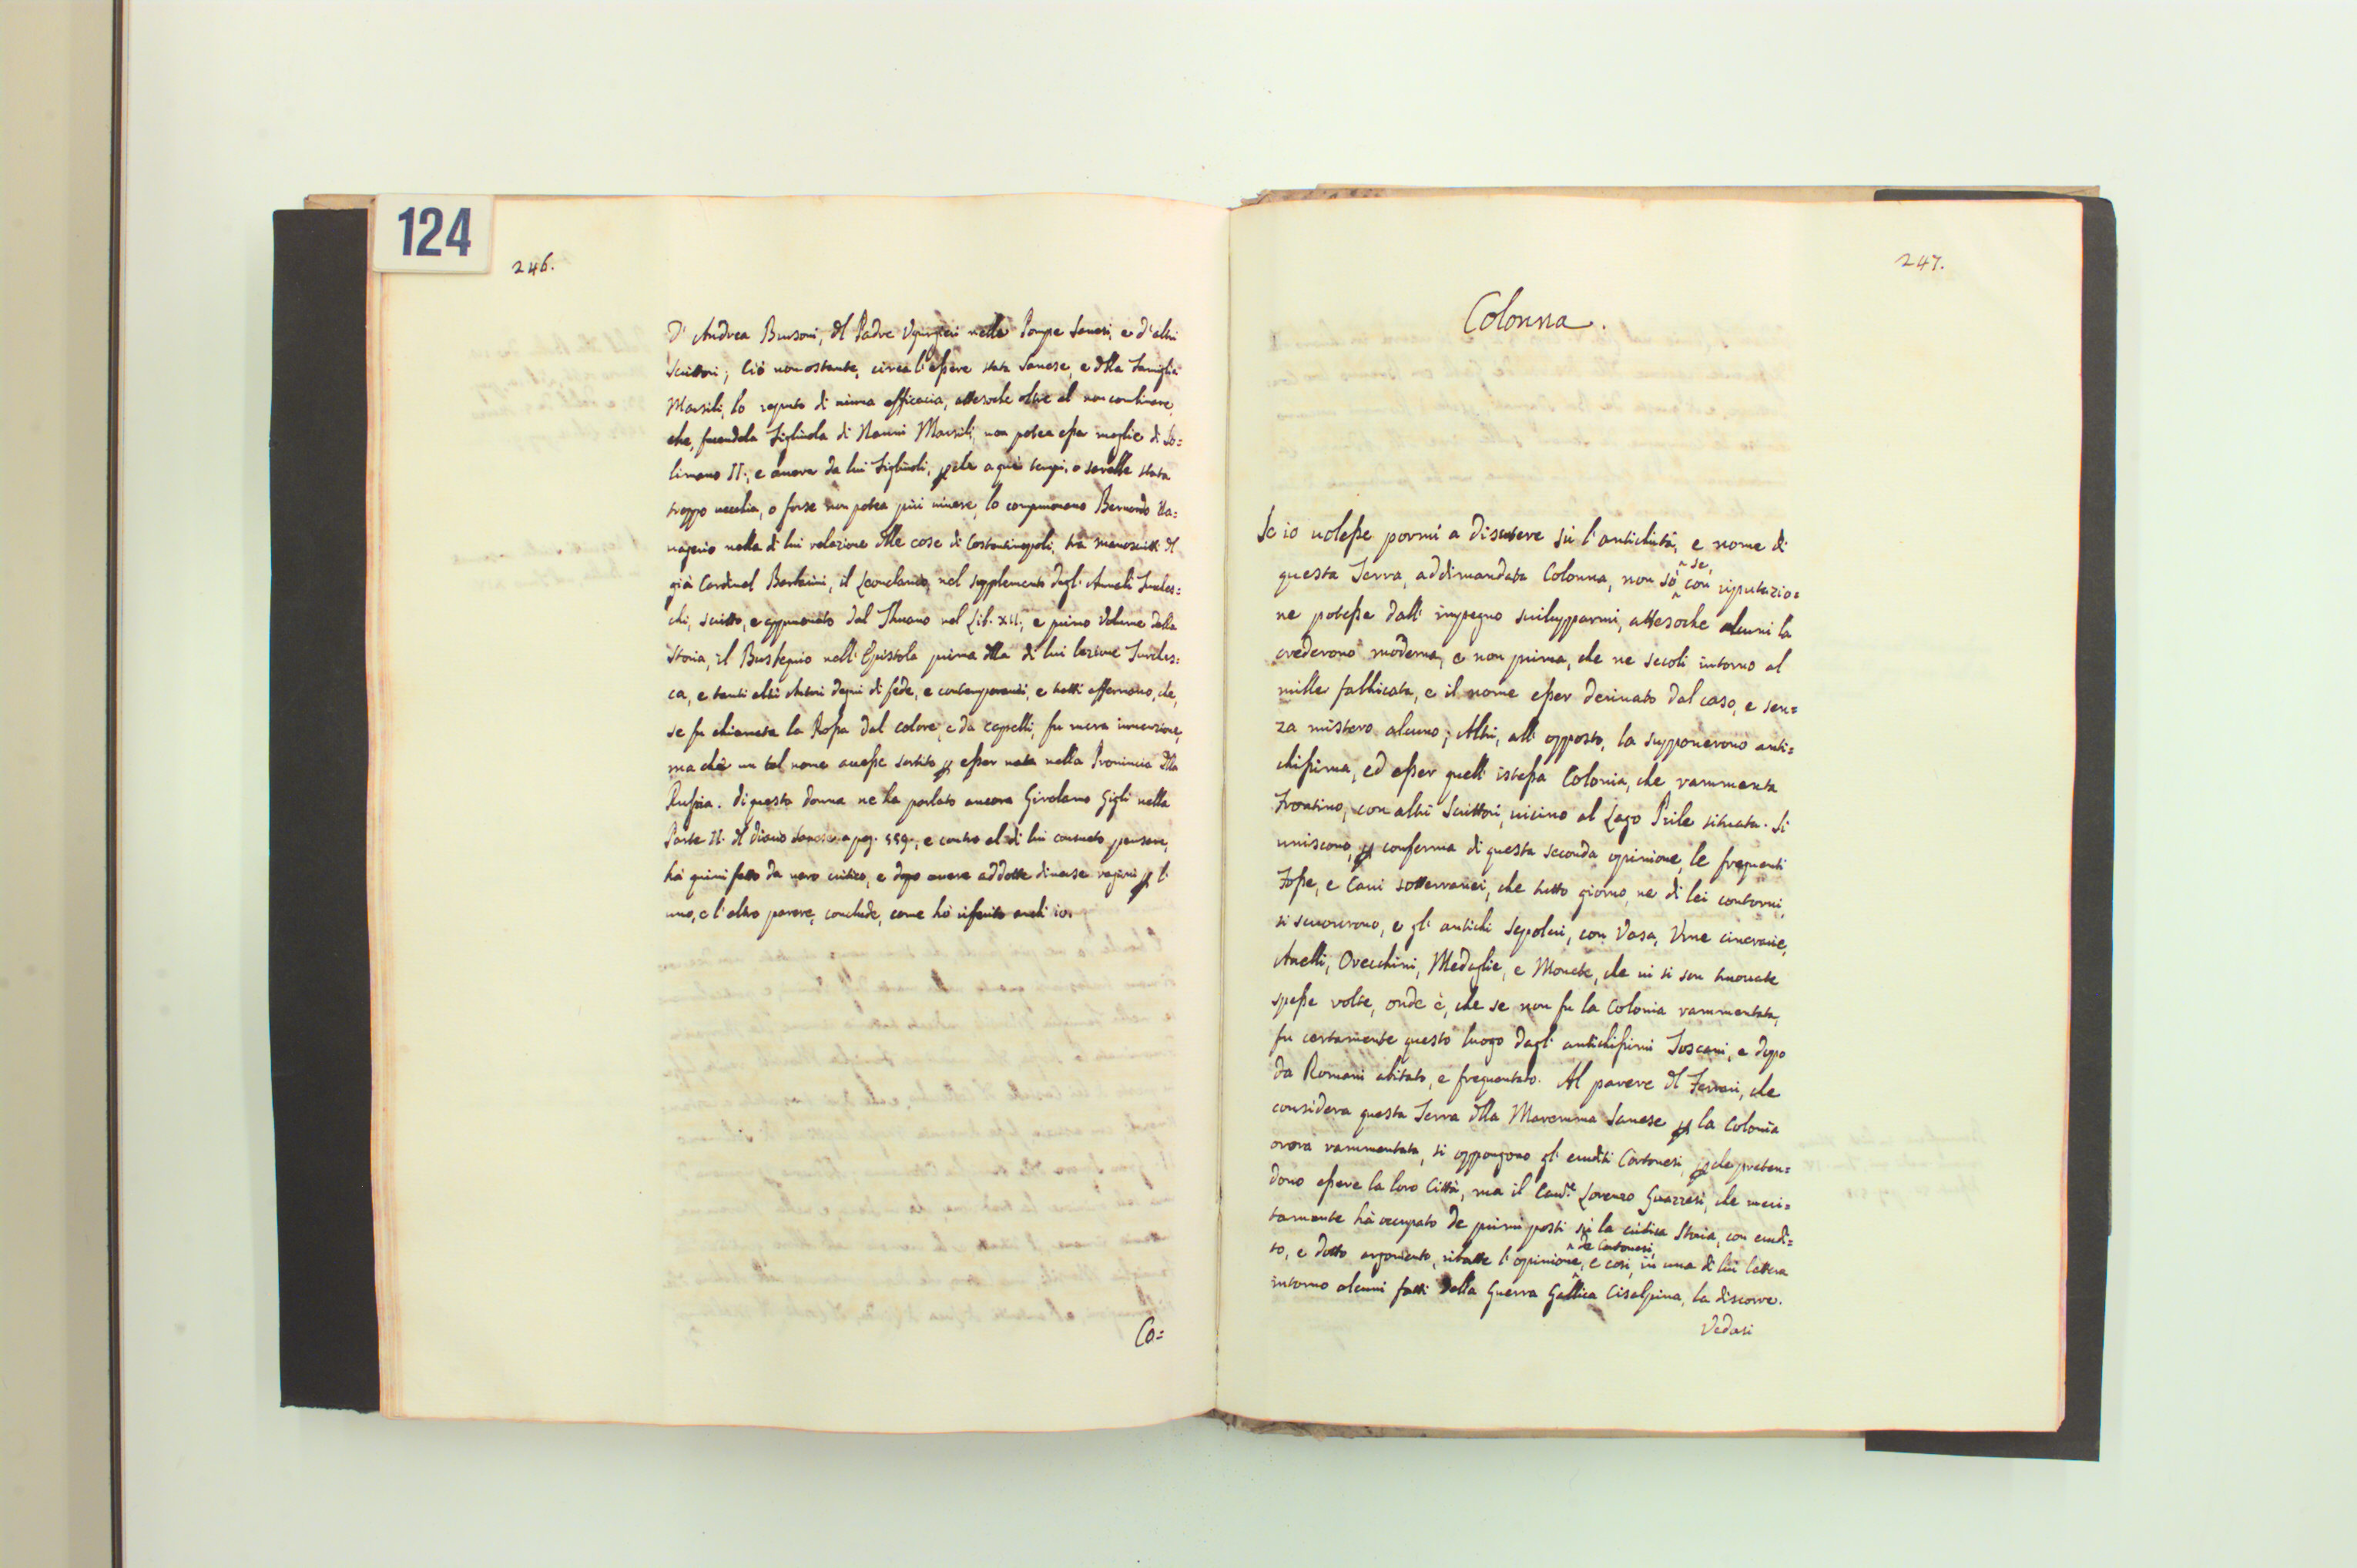 124
246.
D' Andrea Bursoni, dl Padre Vgurgieri nelle Pompe Sanesi, e d'altri
Scrittori; Ciò nonostante, circa l'eßere stata Sanese, e dlla Famiglia
Marsili, lo reputo di niuna efficacia, attesoche oltre al non combinare,
che, facendola Figliuola di Nanni Marsili, non potea eßer moglie di So=
limano II., e avere da lui Figliuoli, pche a quei tempi, o sarebbe stata
troppo vecchia, o forse non potea più vivere, lo comprovano Bernardo Na=
vagerio nella di lui relazione dlle cose di Costantinopoli, trà manoscritti dl
già Cardinal Barberini, il Leonclavio, nel supplemento degl' Annali Turches=
chi, scritto, e approvato dal Thuano nel Lib. XII., e primo Volume della
Storia, il Busbequio nell' Epistola prima dlla di lui lezione Turches=
ca, e tanti altri Autori degni di fede, e contemporanei, e tutti affermano, che,
se fu chiamata la Roßa dal colore, e da capelli, fu mera invenzione,
ma che un tal nome aveße sortito p eßer nata nella Provincia dlla
Rußia. di questa donna ne ha parlato ancora Girolamo Gigli nella
Parte II. dl diario Sanese a pag. 559., e contro al di lui consueto pensare,
hà quivi fatto da vero critico, e dopo avere addotte diverse ragioni p l'
uno, e l'altro parere, conclude, come hò riferito anch' io.
Co=
247.
Colonna.
Se io voleße pormi a discutere sù l'antichità, e nome di
questa Terra, addimandata Colonna, non sò ^se, con riputazio=
ne poteße dall' impegno svilupparmi, attesoche alcuni la
crederono moderna, e non prima, che ne secoli intorno al
mille fabbricata, e il nome eßer derivato dal caso, e sen=
za mistero alcuno; Altri, all' opposto, la supponerono anti=
chißima, ed eßer quell' isteßa Colonia, che rammenta
Frontino, con altri Scrittori, vicino al Lago Prile situata. Si
uniscono, p conferma di questa seconda opinione, le frequenti
Foße, e Cavi sotterranei, che tutto giorno, ne di lei contorni,
si scuoprono, e gl' antichi Sepolcri, con Vasa, Vrne cinerarie,
Anelli, Orecchini, Medaglie, e Monete, che vi si son truovate
speße volte, onde è, che se non fu la Colonia rammentata,
fu certamente questo luogo dagl' antichißimi Toscani, e dopo
da Romani abitato, e frequentato. Al parere dl Ferrari, che
considera questa Terra dlla Maremma Sanese p la Colonia
orora rammentata, si oppongono gl' eruditi Cortonesi, pche preten=
dono eßere la loro Città, ma il Cav.e Lorenzo Guazzesi, che meri=
tamente hà occupato de primi posti sù la critica Storia, con erudi=
to, e dotto argomento, ribatte l'opinione ^de Cortonesi, e così, in una di lui lettera
intorno alcuni fatti della Guerra Gallica Cisalpina, la discorre.
Vedasi